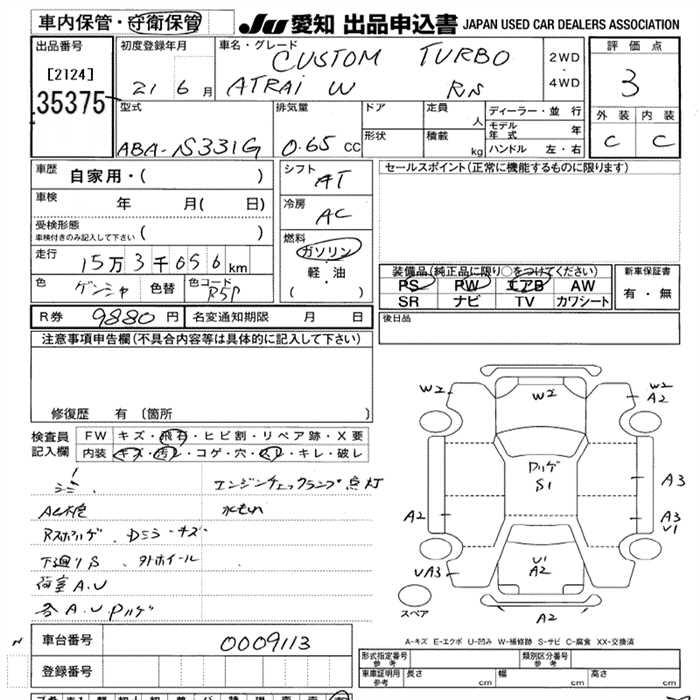 車内保管・守衛保管 JU 愛知 出品申込書 JAPAN USED CAR DEALERS ASSOCIATION
出品番号
[2124]
35375
初度登録年月
21 6 月
車名・グレード
CUSTOM TURBO
ATRAI W RS
2WD
・
4WD
評価点
3
外装 内装
C C
型式
ABA-S331G
排気量
0.65 CC
ドア
形状
定員
人
積載
kg
ディーラー・並行
モデル年式 年
ハンドル 左・右
車歴
自家用・( )
車検
年 月( 日)
受検形態
車検付きのみ記入して下さい ( )
走行
15万3千656km
色 ゲンシャ 色替 色コード R59
シフト
AT
冷房
AC
燃料
ガソリン
・
軽・油
( )
セールスポイント(正常に機能するものに限ります)
装備品(純正品に限り○をつけてください)
PS PW エアB AW
SR ナビ TV カワシート
新車保証書
有・無
R券 9880 円 名変通知期限 月 日
後日品
注意事項申告欄(不具合内容等は具体的に記入して下さい)
修復歴 有 〔箇所 〕
検査員記入欄
FW キズ・飛石・ヒビ割・リペア跡・X要
内装 キズ・汚レ・コゲ・穴・スレ・キレ・破レ
エンジンチェックランプ点灯
水もれ
下廻りS 外ホイール
荷室A.U
各A.U Pハゲ
W2
W2
W2
A2
Pハゲ
S1
A3
A2
A3
U1
UA3
U1
A2
スペア
A2
A-キズ E-エクボ U-凹み W-補修跡 S-サビ C-腐食 XX-交換済
車台番号 0009113
登録番号
型式指定番号
参考
類別区分番号
参考
車庫証明用
参考
長さ cm 幅 cm 高さ cm